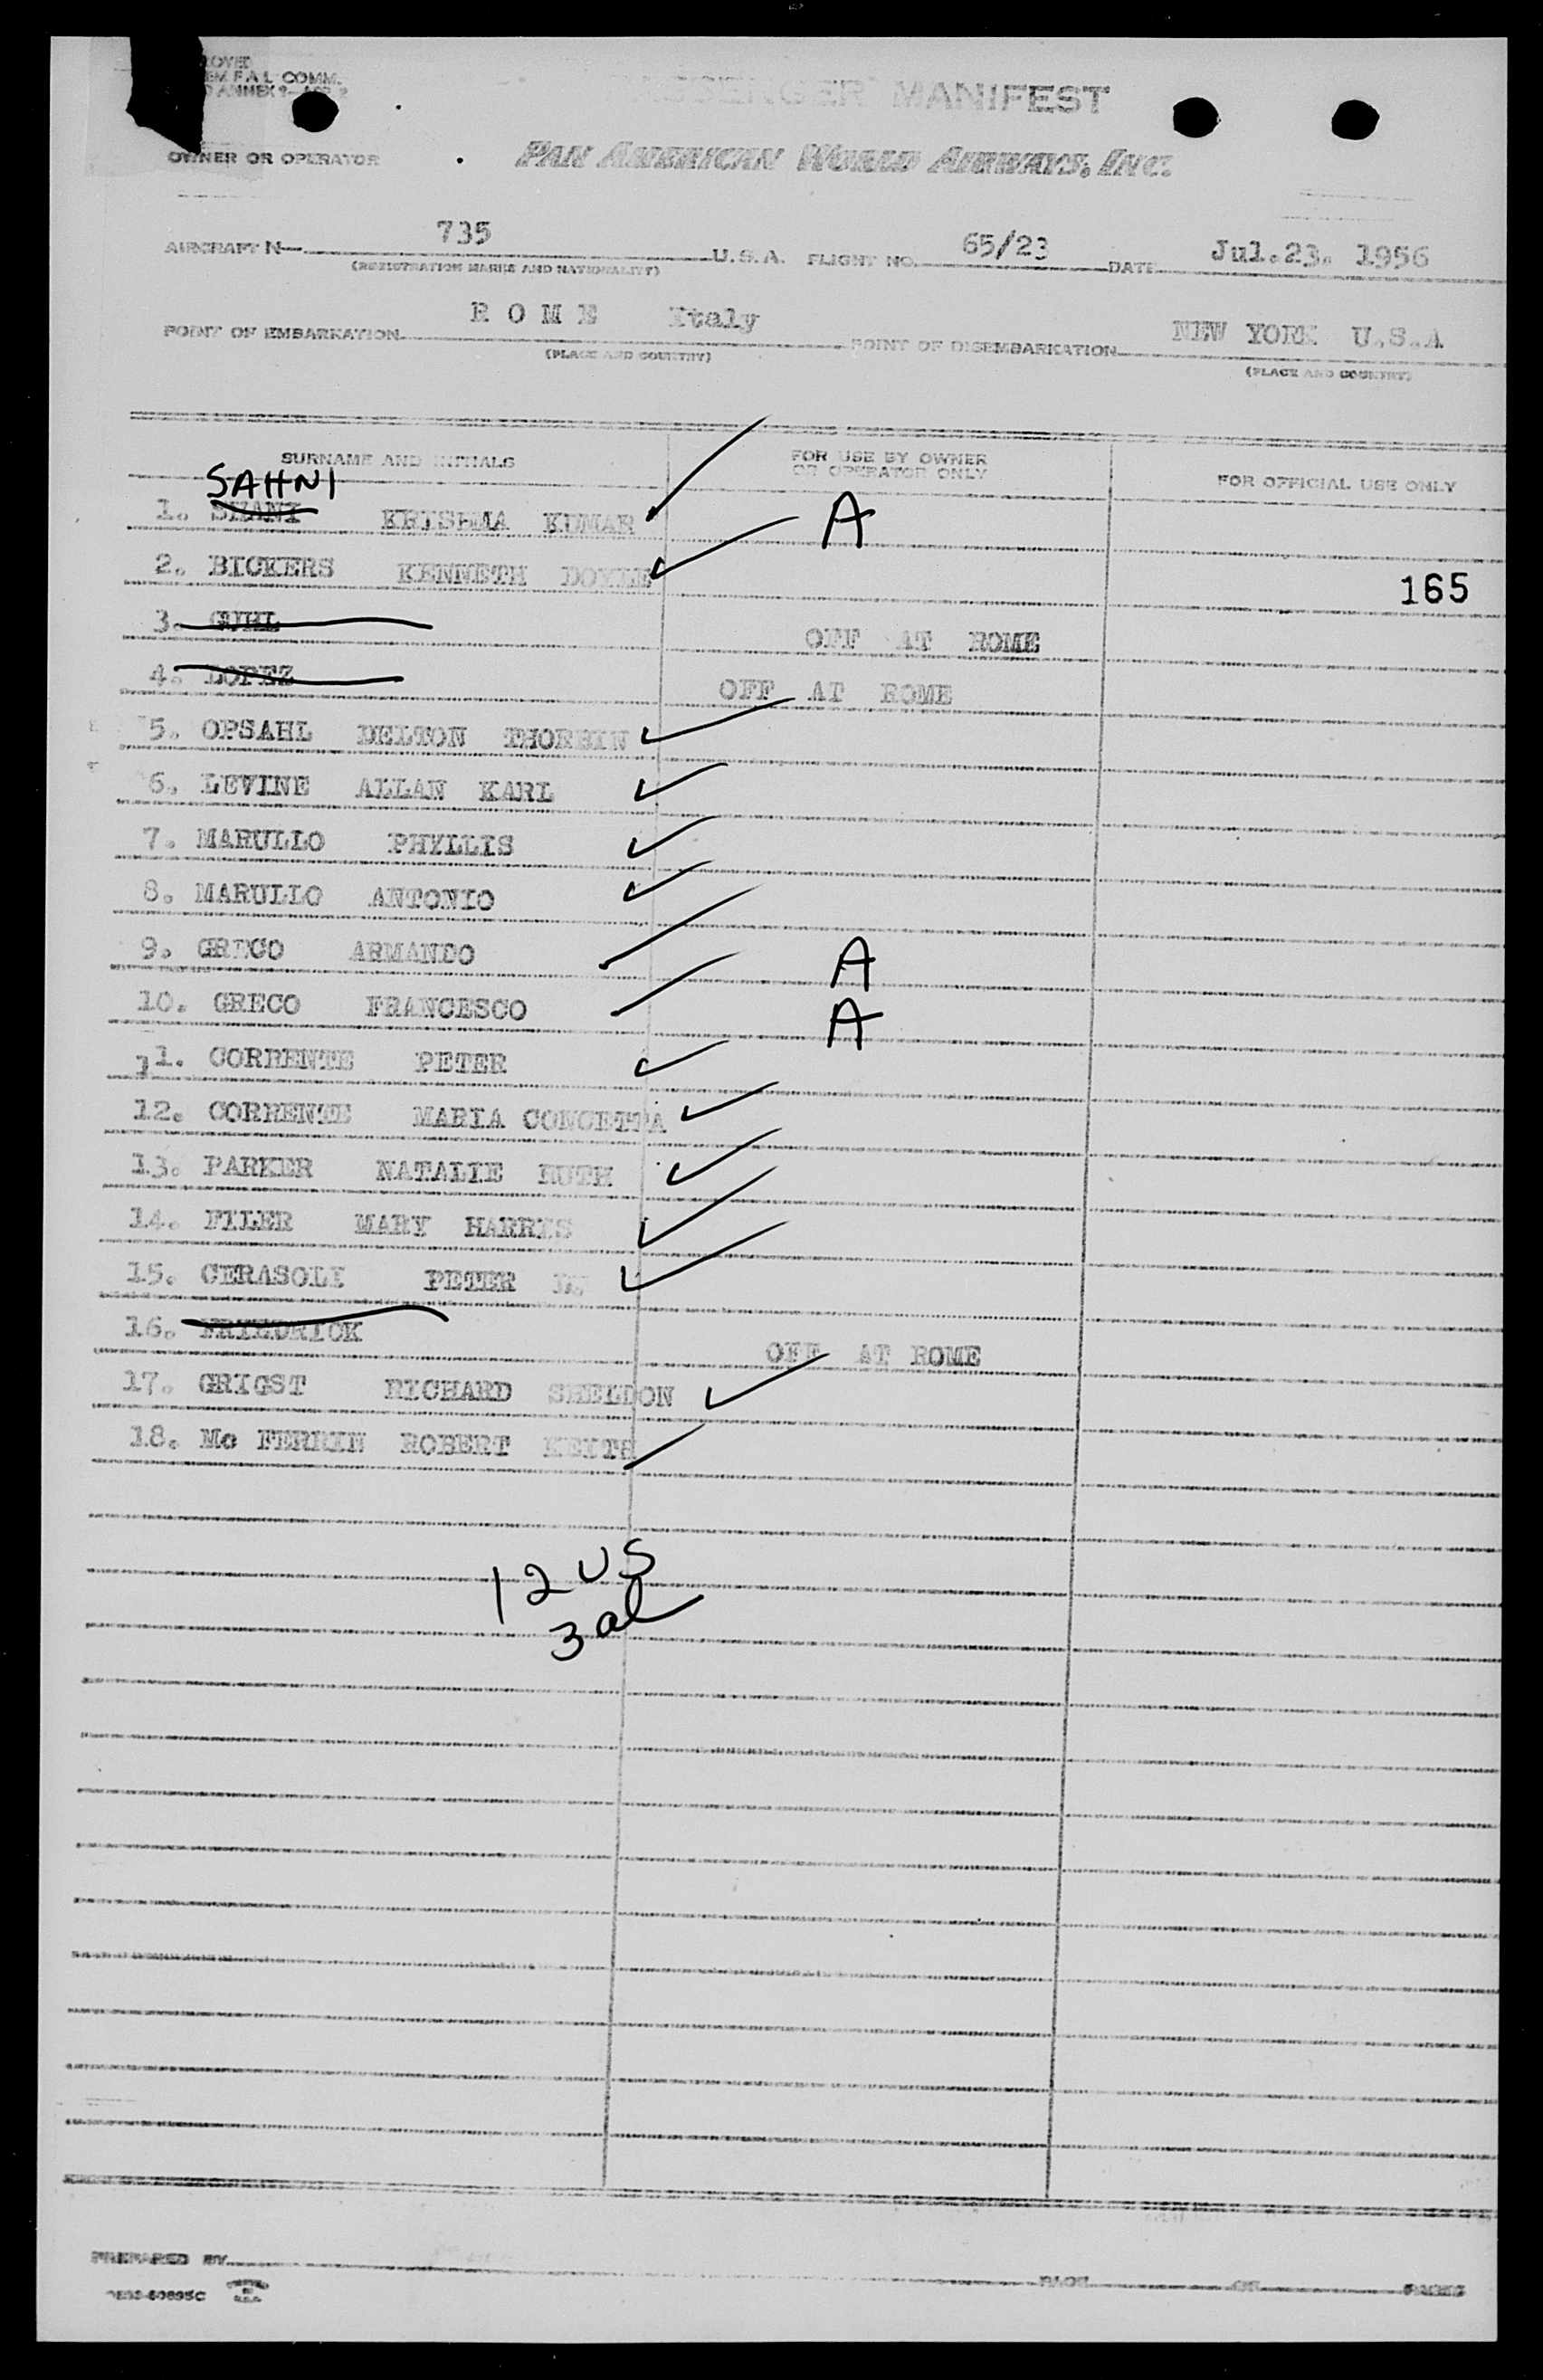 OWNER OR OPERATOR
MANIFEST
PAN AMERICAN WORLD AIRWAYS, INC.
AIRCRAFT N- 735 U.S.A. FLIGHT NO. 65/23 DATE Jul.23. 1956
(REGISTRATION MARKS AND NATIONALITY)
POINT OF EMBARKATION R O M E Italy POINT OF DISEMBARKATION NEW YORK U.S.A
(PLACE AND COUNTRY) (PLACE AND COUNTRY)
SURNAME AND INITIALS FOR USE BY OWNER OR OPERATOR ONLY FOR OFFICIAL USE ONLY
SAHNI
1. SHANI KRISHMA KUMAR A
2. BICKERS KENNETH DOYLE 165
3. GUHL OFF AT ROME
4. LOPEZ OFF AT ROME
5. OPSAHL DELTON THORBIN
6. LEVINE ALLAN KARL
7. MARULLO PHYLLIS
8. MARULLO ANTONIO
9. GRECO ARMANDO A
10. GRECO FRANCESCO A
11. CORRENTE PETER
12. CORRENTE MARIA CONCETTA
13. PARKER NATALIE RUTH
14. FILER MARY HARRIS
15. CERASOLI PETER
16. FRIEDRICK OFF AT ROME
17. GRIGST RICHARD SHELDON
18. Mc FERRIN ROBERT KEITH
12 US
3 al
PREPARED BY PAGE OF PAGES